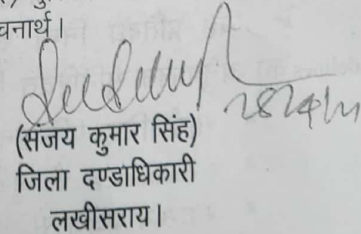 चनार्थ।
(संजय कुमार सिंह)
जिला दण्डाधिकारी
लखीसराय।